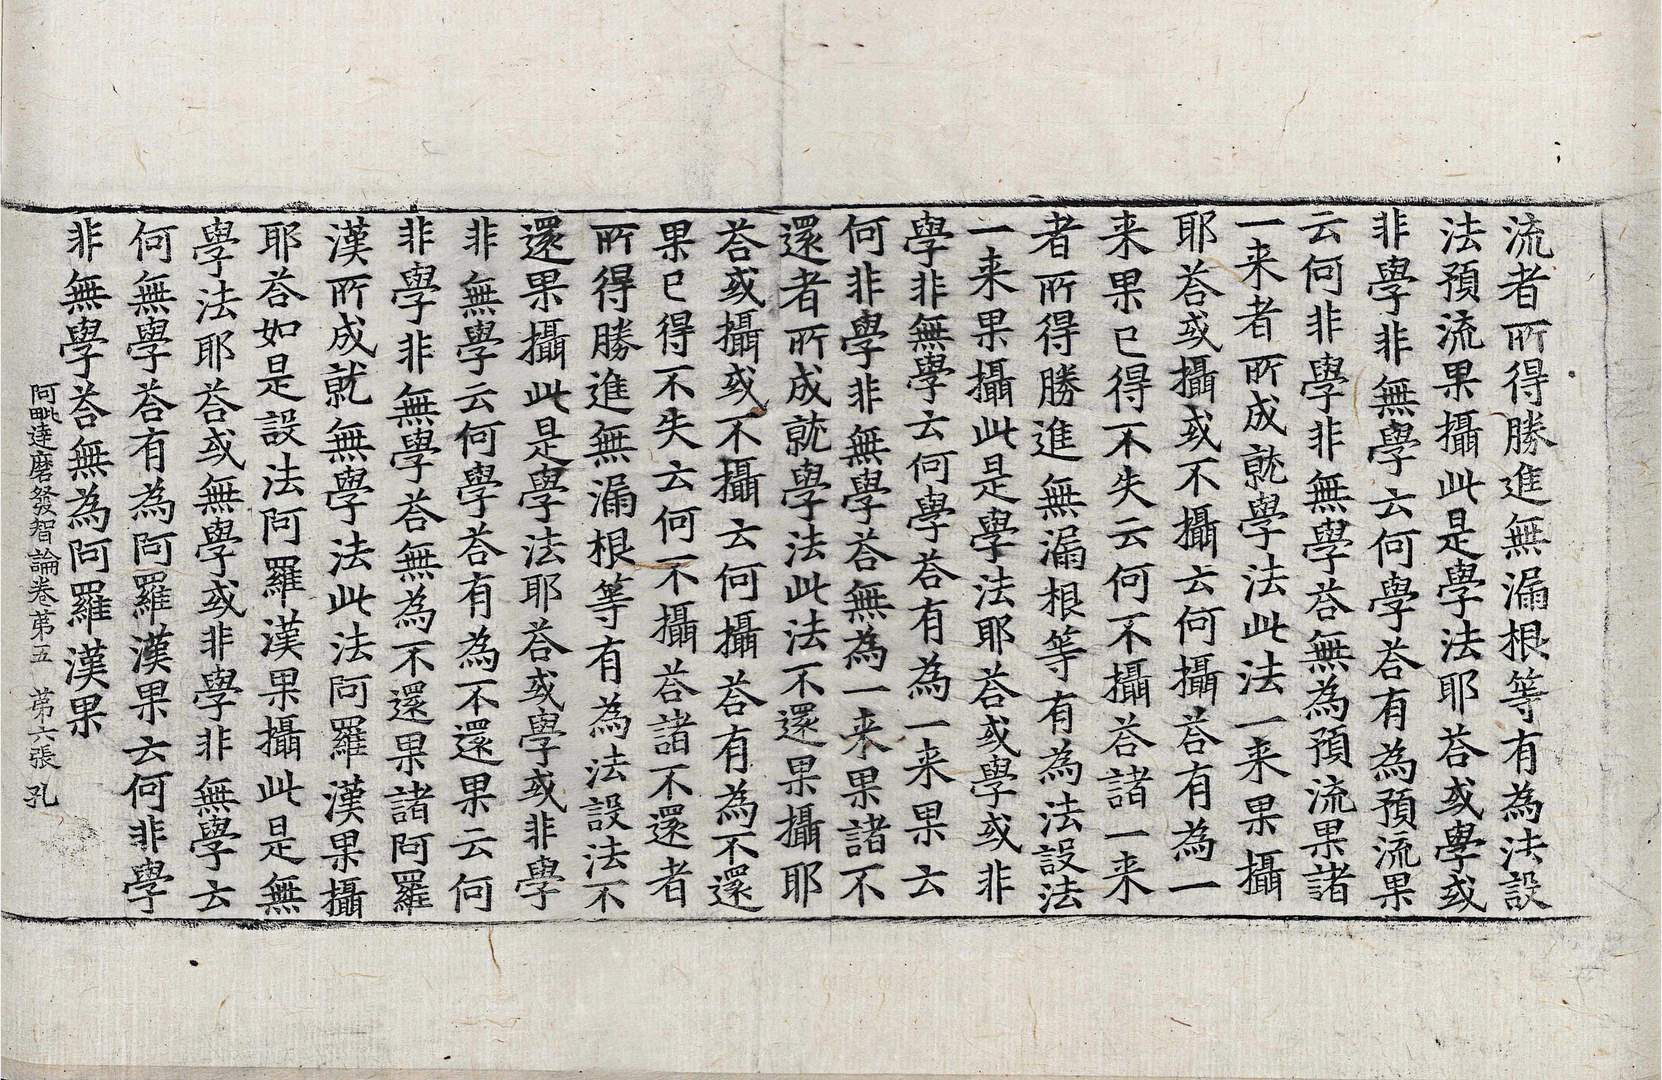 流者所得勝進無漏根等有為法設
法預流果攝此是學法耶荅或學或
非學非無學云何學荅有為預流果
云何非學非無學荅無為預流果諸
一来者所成就學法此法一来果攝
耶荅或攝或不攝云何攝荅有為一
来果已得不失云何不攝荅諸一来
者所得勝進無漏根等有為法設法
一来果攝此是學法耶荅或學或非
學非無學云何學荅有為一来果云
何非學非無學荅無為一来果諸不
還者所成就學法此法不還果攝耶
荅或攝或不攝云何攝荅有為不還
果已得不失云何不攝荅諸不還者
所得勝進無漏根等有為法設法不
還果攝此是學法耶荅或學或非學
非無學云何學荅有為不還果云何
非學非無學荅無為不還果諸阿羅
漢所成就無學法此法阿羅漢果攝
耶荅如是設法阿羅漢果攝此是無
學法耶荅或無學或非學非無學云
何無學荅有為阿羅漢果云何非學
非無學荅無為阿羅漢果
阿毗達磨發智論卷第五 第六張 孔